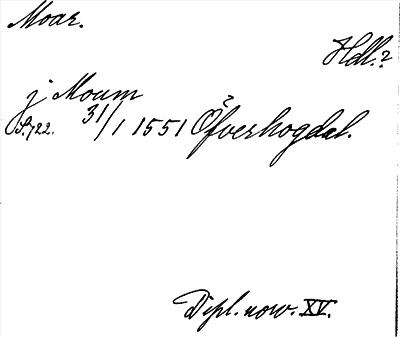 Moar.
Hdl.?
j Moum
S. 722. 31/1 1551 Öfverhogdal.
?
Dipl. norv. XV.